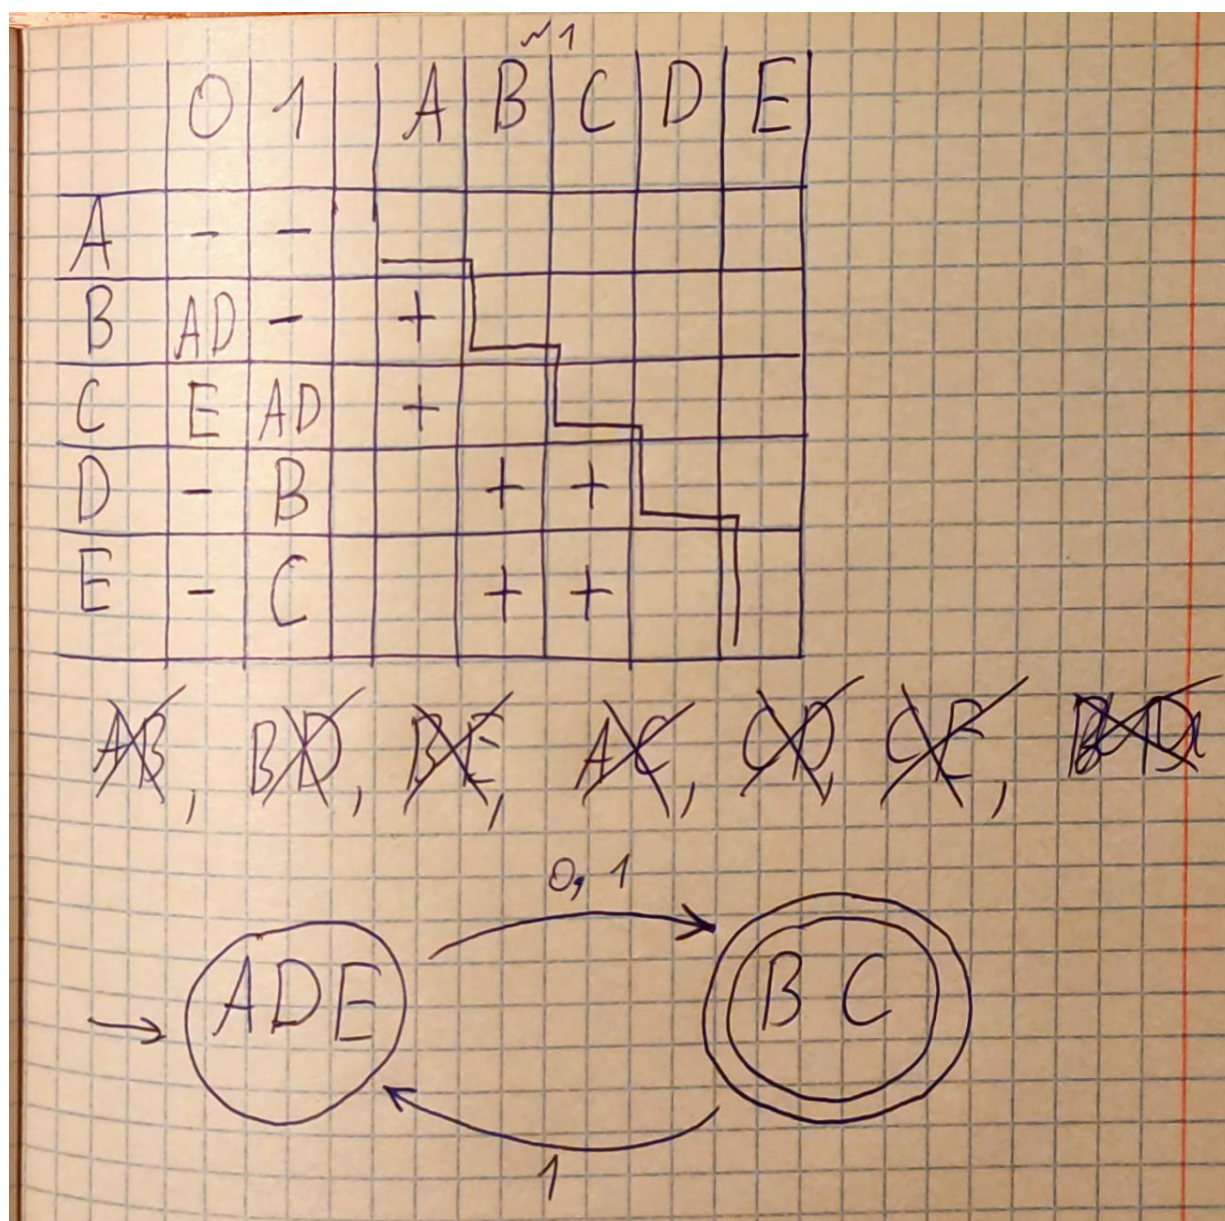 ~1
0 1 A B C D E
A - -
B AD - +
C E AD +
D - B + +
E - C + +
AB, BD, BE, AC, CD, CE,
0, 1
ADE BC
1